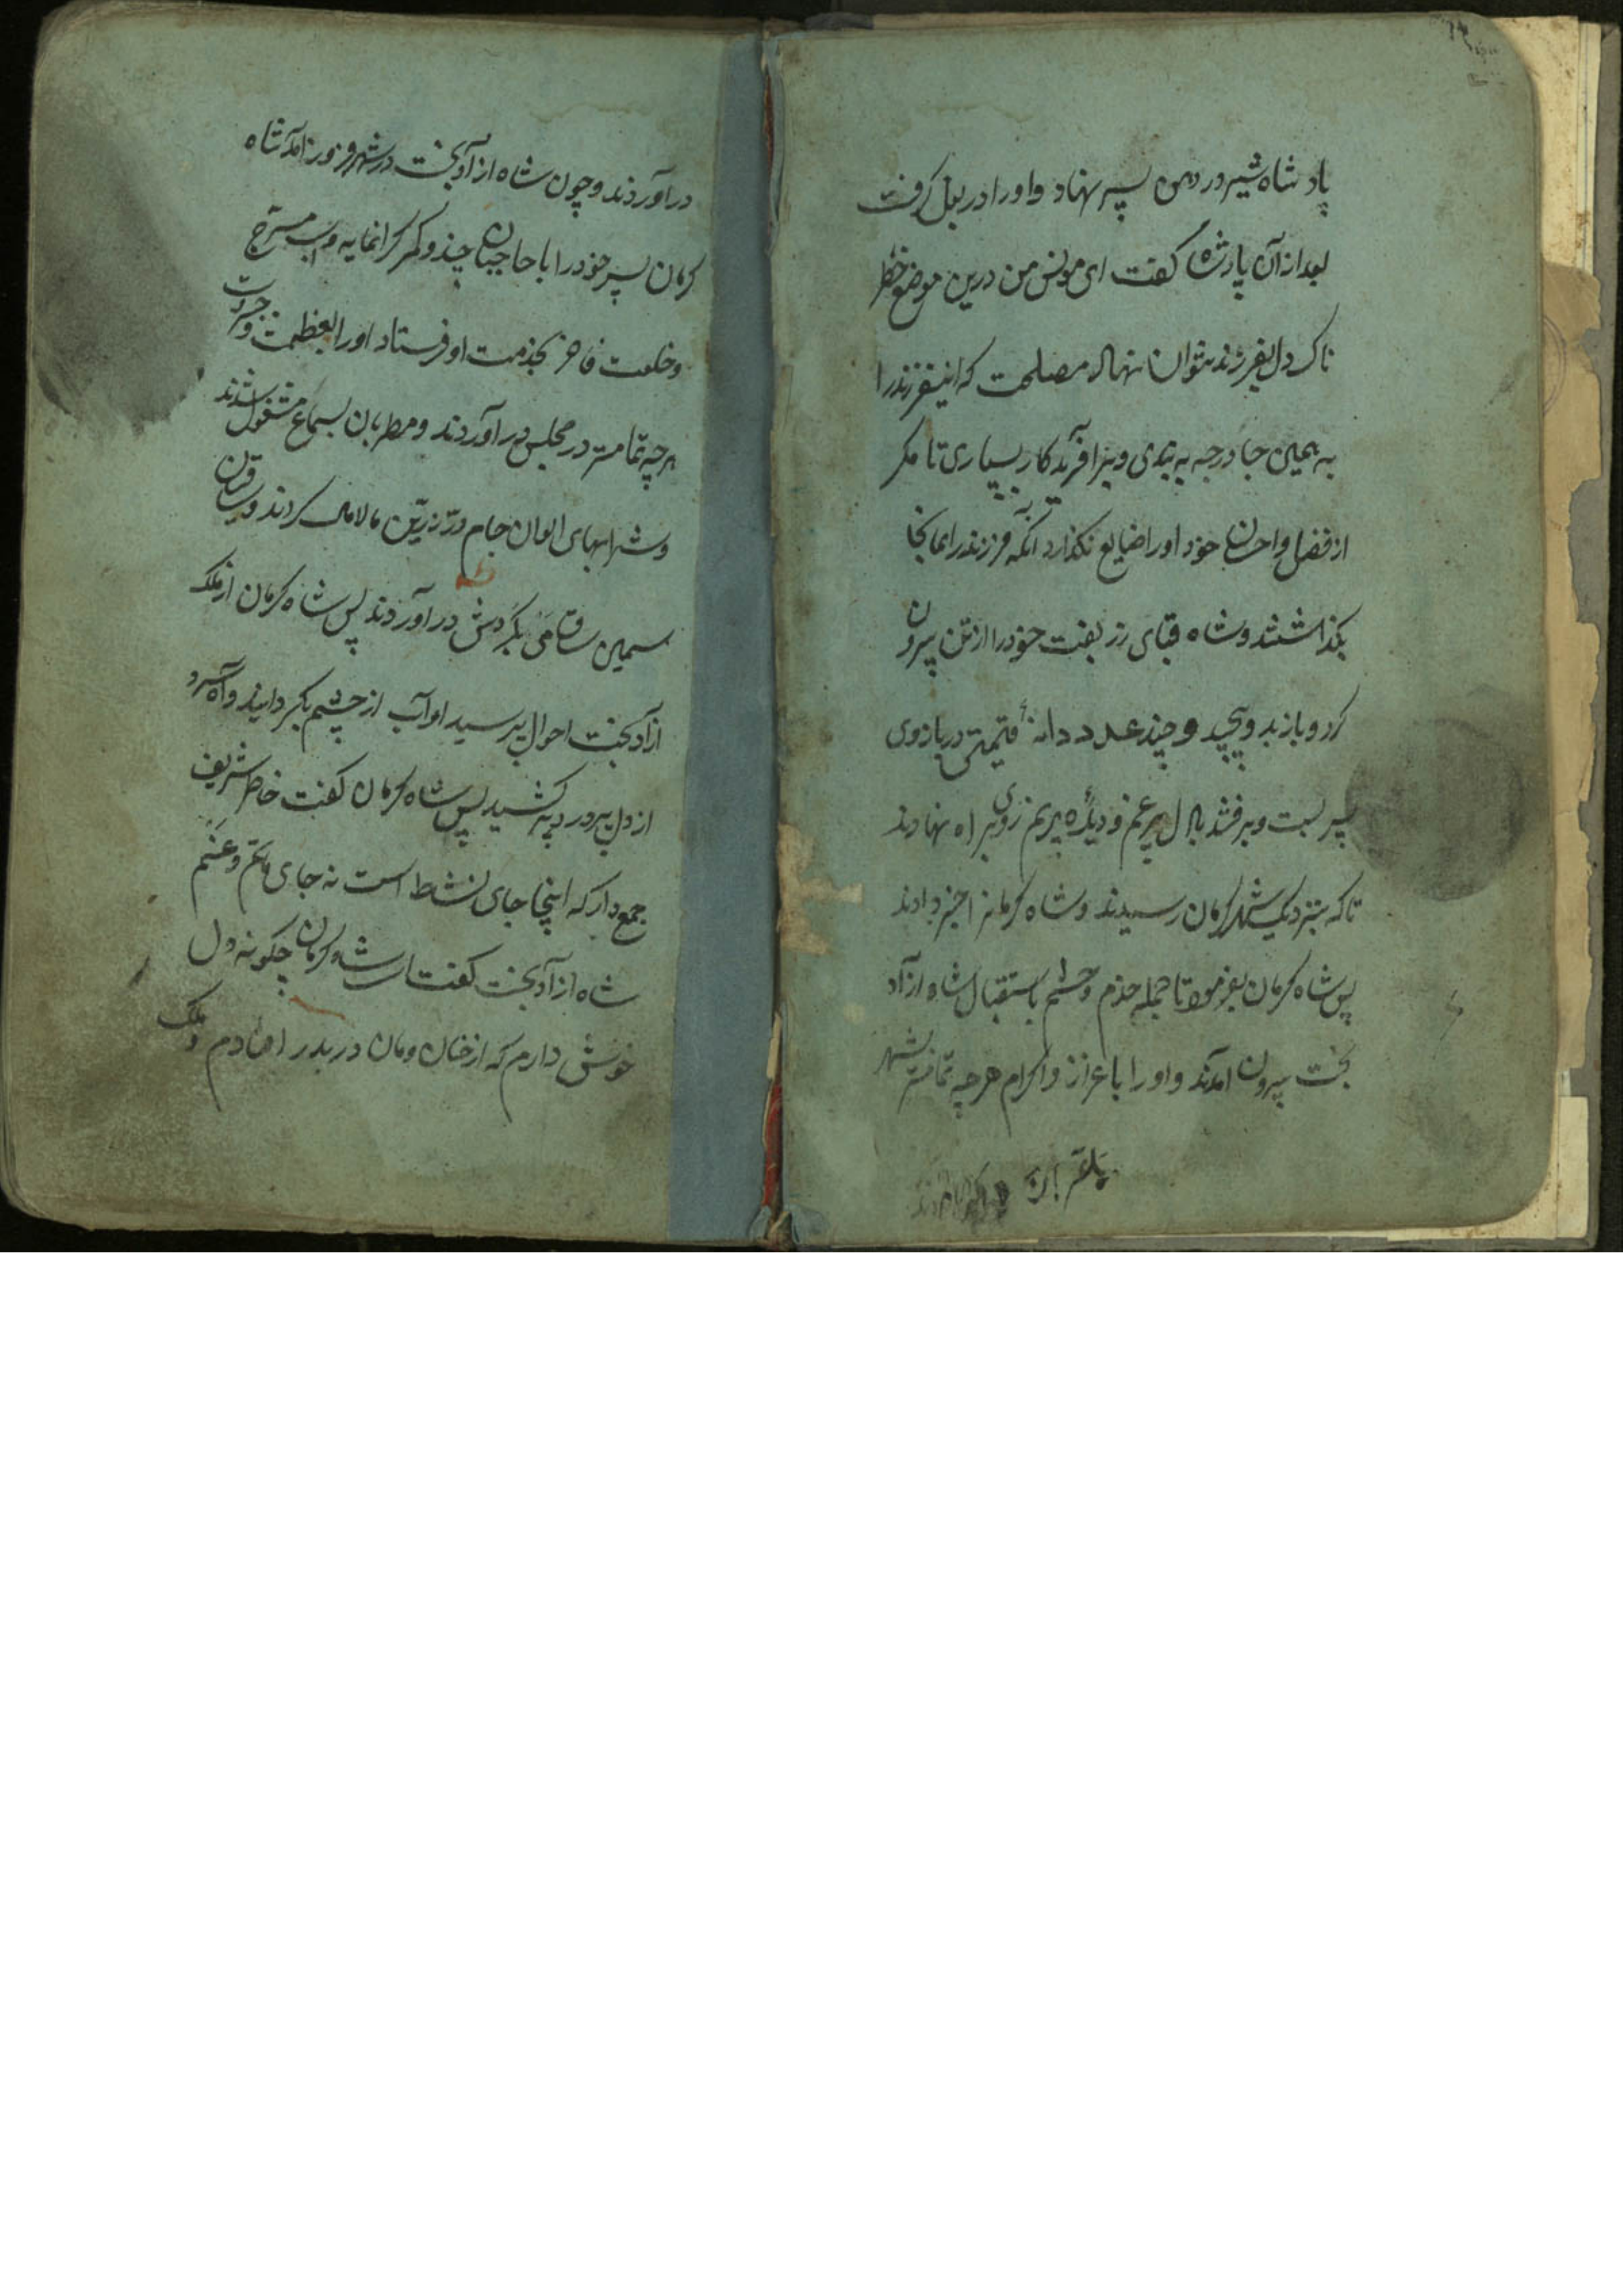 پادشاه شیر در دهن پسر نهاد و او را در بغل گرفت
بعد از آن پادشاه گفت ای مونس من درین موضع خطر
ناک دل بفرزند نتوان نهاد مصلحت که اینفرزند را
به همین جا و رجه به بندی و بز آفریدکار بسپاری تا مگر
از فضل و احسان خود او را ضایع نگذارد آنگه فرزند را همانجا
بگذاشتند و شاه قبای زر بفت خود را از تن بیرون
کرد و باز بدو پیچید و چند عدد دانهٔ قیمتی در بازوی
پسر بست و برفتند با دل پر غم و دیدهٔ پر نم روی براه نهادند
تا که بنزدیک شهر کرمان رسیدند و شاه کرمانرا خبر دادند
پس شاه کرمان بفرمود تا جمله خدم و حشم باستقبال شاه ازاد
بخت بیرون آمدند و او را باعزاز و اکرام هرچه تمامتر بشهر
در آوردند و چون شاه ازادبخت در شهر فرود آمد شاه
کرمان پسر خود را با حاجبان چند و کمر گرانمایه و اسب مسرج
و خلعت فاخر بخدمت او فرستاد او را بعظمت و حرمت
هرچه تمامتر در مجلس در آوردند و مطربان بسماع مشغول شدند
و شرابهای الوان جام در زرین مالامال کردند و ساقیان
سیمین ساق می بگردش در آوردند پس شاه کرمان از ملک
ازادبخت احوال بپرسید او آب از چشم بگردانید و آه سرد
از دل پردرد بر کشید پس شاه کرمان گفت خاطر شریف
جمع دار که اینجا جای نشاط است نه جای ماتم و غم
شاه ازادبخت گفت ای شاه کرمان چگونه دل
خوش دارم که از خان و مان در بدر افتادم و ملک